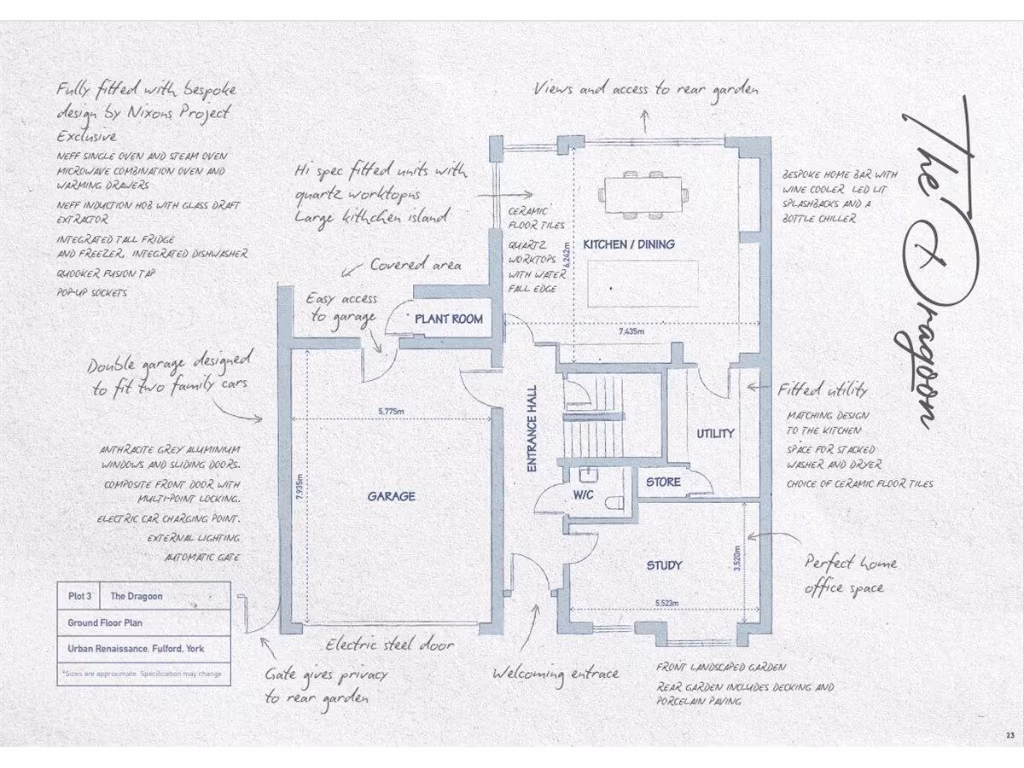 Fully fitted with bespoke
design by Nixons Project
Exclusive
NEFF SINGLE OVEN AND STEAM OVEN
MICROWAVE COMBINATION OVEN AND
WARMING DRAWERS
NEFF INDUCTION HOB WITH GLASS DRAFT
EXTRACTOR
INTEGRATED TALL FRIDGE
AND FREEZER, INTEGRATED DISHWASHER
QUOOKER FUSION TAP
POP-UP SOCKETS
Views and access to rear garden
Hi spec fitted units with
quartz worktopns
Large kithchen island
CERAMIC
FLOOR TILES
QUARTZ
WORKTOPS
WITH WATER
FALL EDGE
KITCHEN / DINING
6,242m
7,435m
BESPOKE HOME BAR WITH
WINE COOLER LED LIT
SPLASHBACKS AND A
BOTTLE CHILLER
The Dragoon
Covered area
Easy access
to garage
PLANT ROOM
Double garage designed
to fit two family cars
5,775m
7,935m
GARAGE
ENTRANCE HALL
UTILITY
STORE
W/C
Fitted utility
MATCHING DESIGN
TO THE KITCHEN
SPACE FOR STACKED
WASHER AND DRYER
CHOICE OF CERAMIC FLOOR TILES
ANTHRACITE GREY ALUMINIUM
WINDOWS AND SLIDING DOORS.
COMPOSITE FRONT DOOR WITH
MULTI-POINT LOCKING.
ELECTRIC CAR CHARGING POINT.
EXTERNAL LIGHTING
AUTOMATIC GATE
STUDY
3,520m
5,523m
Perfect home
office space
Plot 3 The Dragoon
Ground Floor Plan
Urban Renaissance, Fulford, York
*Sizes are approximate. Specification may change
Electric steel door
Gate gives privacy
to rear garden
Welcoming entrace
FRONT LANDSCAPED GARDEN
REAR GARDEN INCLUDES DECKING AND
PORCELAIN PAVING
23